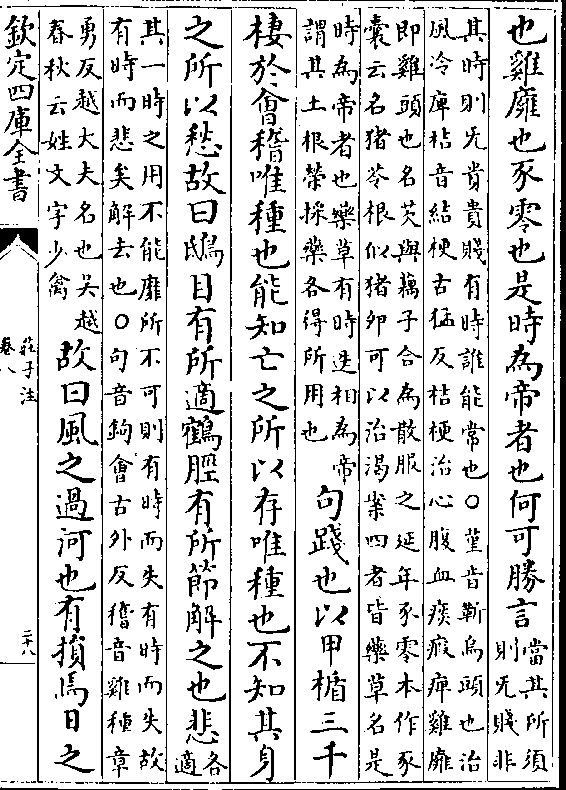 也雞廱也豕零也是時為帝者也何可勝言當其所須
則无賤非
其時則无貴貴賤有時誰能常也○堇音靳烏頭也治
風冷庳桔音結梗古猛反桔梗治心腹血瘀瘕痺雞廱
即雞頭也名芡與藕子合為散服之延年豕零本作豕
囊云名猪苓根似猪卵可以治渴案四者皆藥草名是
時為帝者也藥草有時迭相為帝
謂其土根榮採藥各得所用也
句踐也以甲楯三千
棲於會稽唯種也能知亡之所以存唯種也不知其身
之所以愁故曰鴟目有所適鶴脛有所節解之也悲各
適
其一時之用不能靡所不可則有時而失有時而失故
有時而悲矣解去也○句音鉤會古外反稽音雞種章
勇反越大夫名也吳越
春秋云姓文字少禽
故曰風之過河也有損焉日之
欽定四庫全書
莊子注
卷八
二十八